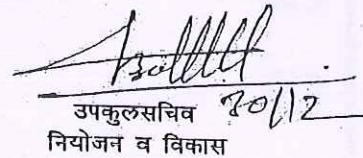 उपकुलसचिव 30/12
नियोजन व विकास